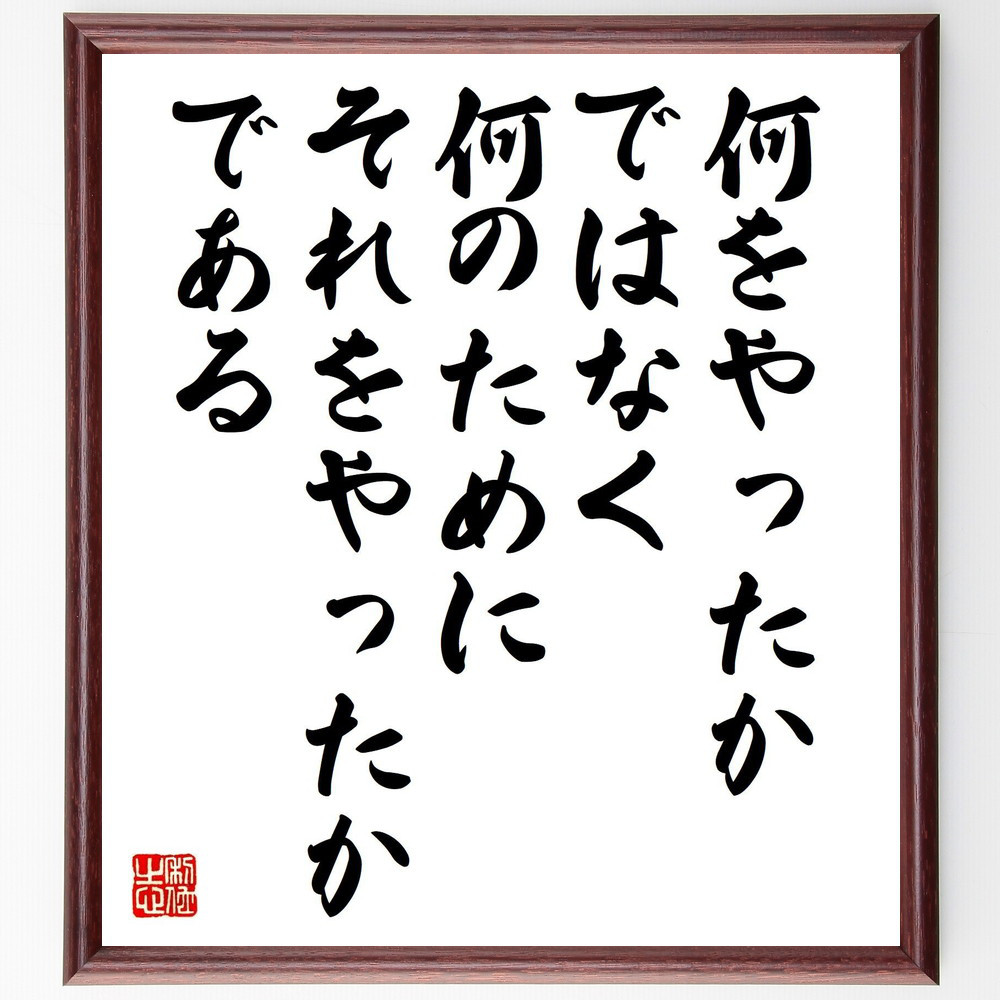 何をやったか
ではなく
何のために
それをやったか
である